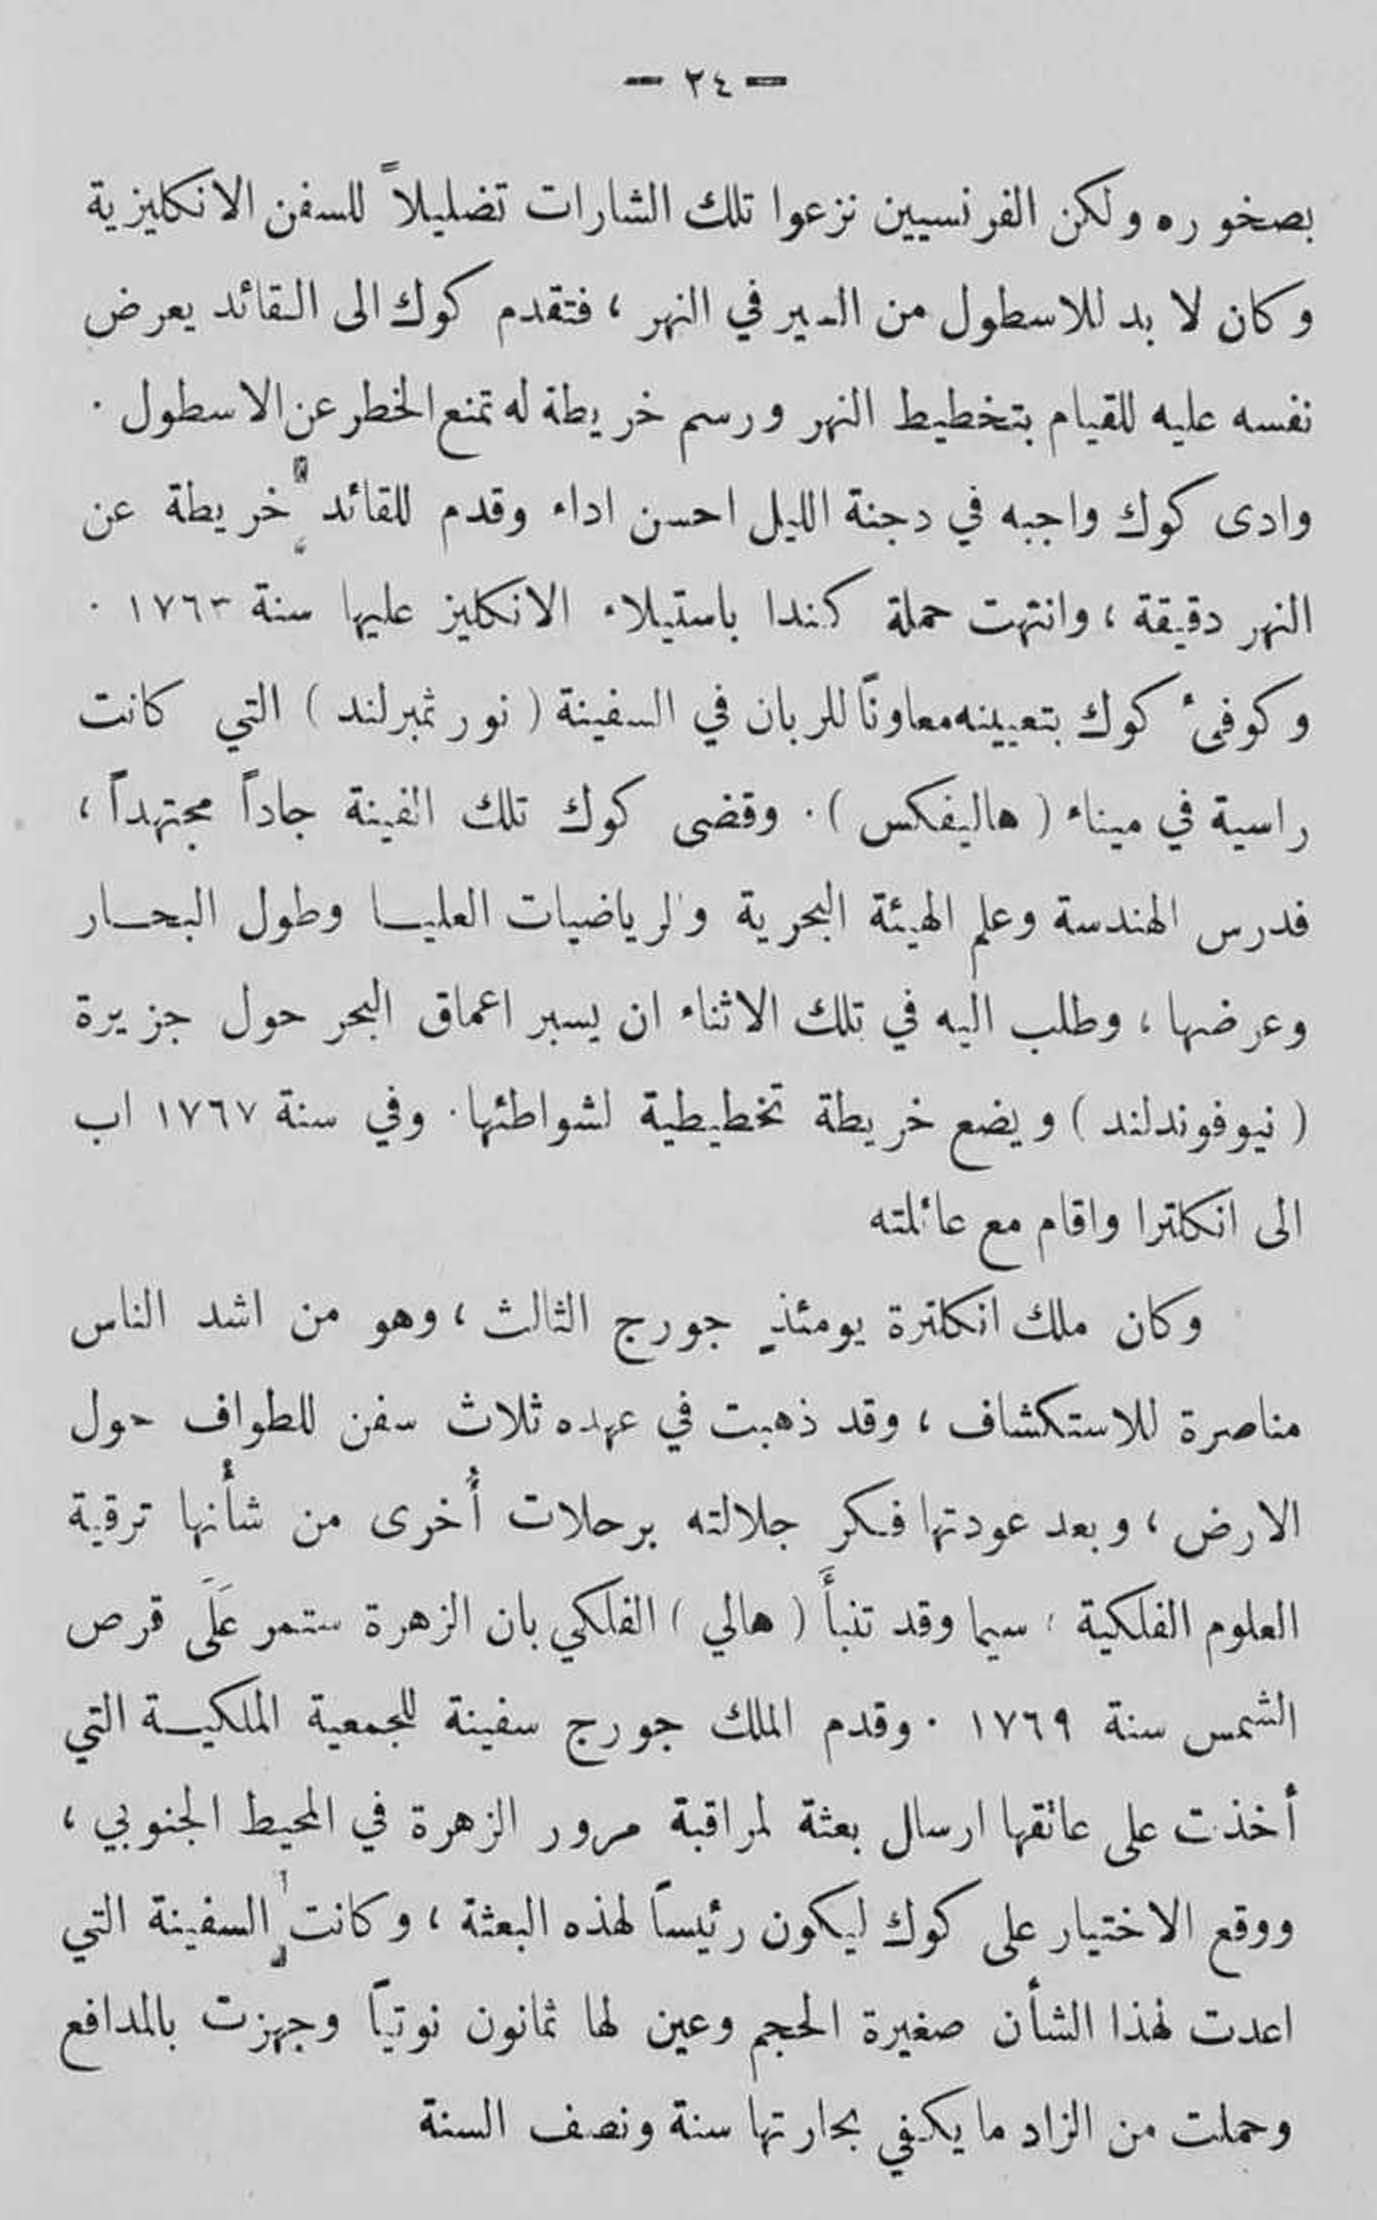 — ٢٤ —
بصخوره ولكن الفرنسيين نزعوا تلك الشارات تضليلاً للسفن الانكليزية
وكان لا بد للاسطول من السير في النهر ، فتقدم كوك الى القائد يعرض
نفسه عليه للقيام بتخطيط النهر ورسم خريطة له تمنع الخطر عن الاسطول .
وادى كوك واجبه في دجنة الليل احسن اداء وقدم للقائد خريطة عن
النهر دقيقة ، وانتهت حملة كندا باستيلاء الانكليز عليها سنة ١٧٦٣ .
وكوفئ كوك بتعيينه معاونًا للربان في السفينة ( نورثمبرلند ) التي كانت
راسية في ميناء ( هاليفكس ) . وقضى كوك تلك الفينة جاداً مجتهداً ،
فدرس الهندسة وعلم الهيئة البحرية والرياضيات العليا وطول البحار
وعرضها ، وطلب اليه في تلك الاثناء ان يسبر اعماق البحر حول جزيرة
( نيوفوندلند ) ويضع خريطة تخطيطية لشواطئها . وفي سنة ١٧٦٧ اب
الى انكلترا واقام مع عائلته
وكان ملك انكلترة يومئذٍ جورج الثالث ، وهو من اشد الناس
مناصرة للاستكشاف ، وقد ذهبت في عهده ثلاث سفن للطواف حول
الارض ، وبعد عودتها فكر جلالته برحلات أُخرى من شأنها ترقية
العلوم الفلكية ، سيما وقد تنبأَ ( هالي ) الفلكي بان الزهرة ستمر عَلَى قرص
الشمس سنة ١٧٦٩ . وقدم الملك جورج سفينة للجمعية الملكية التي
أخذت على عاتقها ارسال بعثة لمراقبة مرور الزهرة في المحيط الجنوبي ،
ووقع الاختيار على كوك ليكون رئيسًا لهذه البعثة ، وكانت السفينة التي
اعدت لهذا الشأن صغيرة الحجم وعين لها ثمانون نوتيًا وجهزت بالمدافع
وحملت من الزاد ما يكفي بحارتها سنة ونصف السنة